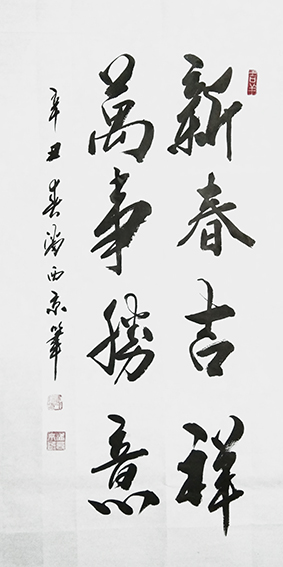 新春吉祥
萬事勝意
辛丑春潘西京筆